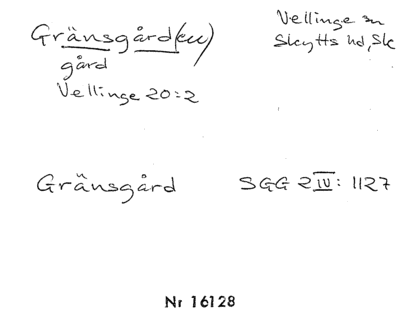 Gränsgård(en)
gård
Vellinge 20:2
Vellinge sn
Skytts hd, Sk
Gränsgård SGG 2 IV: 1127
Nr 16128